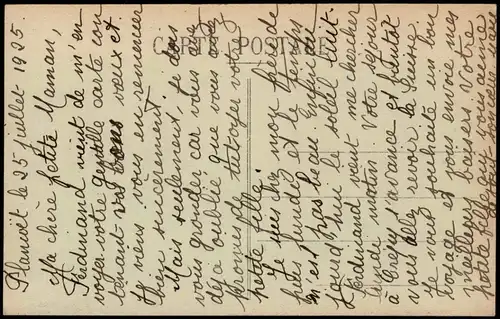 CARTE POSTALE
Plancoët le 25 juillet 1925
Ma chère petite Maman,
Ferdinand vient de m'en
voyer votre gentille carte con
tenant vos bons vœux et
je viens vous en remercier
bien sincèrement.
Mais seulement, je dois
vous gronder car vous avez
déjà oublié que vous avez
promis de tutoyer votre
petite fille.
Je suis chez moi depuis
hier lundi et le temps
n'est pas beau. Enfin
aujourd'hui le soleil luit.
Ferdinand vient me chercher
lundi matin. Votre séjour
à s'avance et bientôt
vous allez revoir la Suisse.
Je vous souhaite un bon
voyage et vous envoie mes
meilleurs baisers. Votre
petite fille qui vous aime